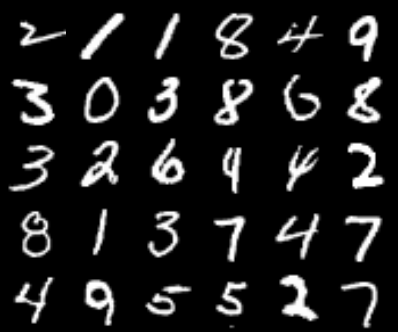 2 1 1 8 4 9
3 0 3 8 6 8
3 2 6 9 4 2
8 1 3 7 4 7
4 9 5 5 2 7